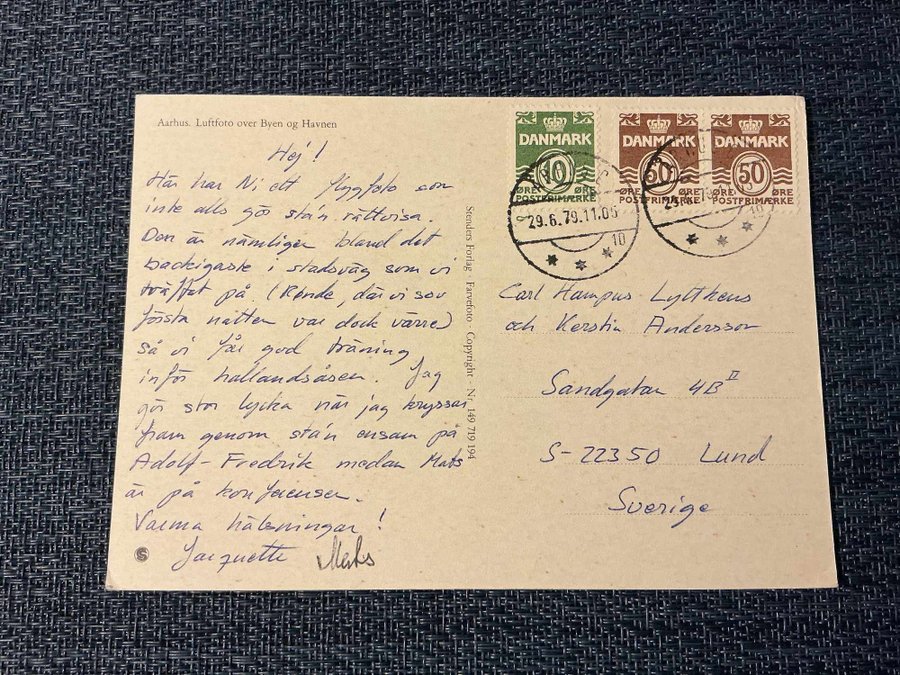 Aarhus. Luftfoto over Byen og Havnen
Hej!
Här har Ni ett flygfoto som
inte alls gör sta'n rättvisa.
Den är nämligen bland det
backigaste i stadsväg som vi
träffat på. (Rønde, där vi sov
första natten var dock värre)
så vi får god träning
inför hallandsåsen. Jag
gör stor lycka när jag kryssar
fram genom sta'n ensam på
Adolf-Fredrik medan Mats
är på konferensen.
Varma hälsningar!
Jacquette Mats
S
Stenders Forlag · Farvefoto · Copyright · Nr. 149 719 194
DANMARK
10
ØRE ØRE
POSTFRIMÆRKE
DANMARK
50
ØRE ØRE
POSTFRIMÆRKE
DANMARK
50
ØRE ØRE
POSTFRIMÆRKE
29.6.79.11.05
10
10
Carl Hampus Lyttkens
och Kerstin Andersson
Sandgatan 4B II
S-22350 Lund
Sverige